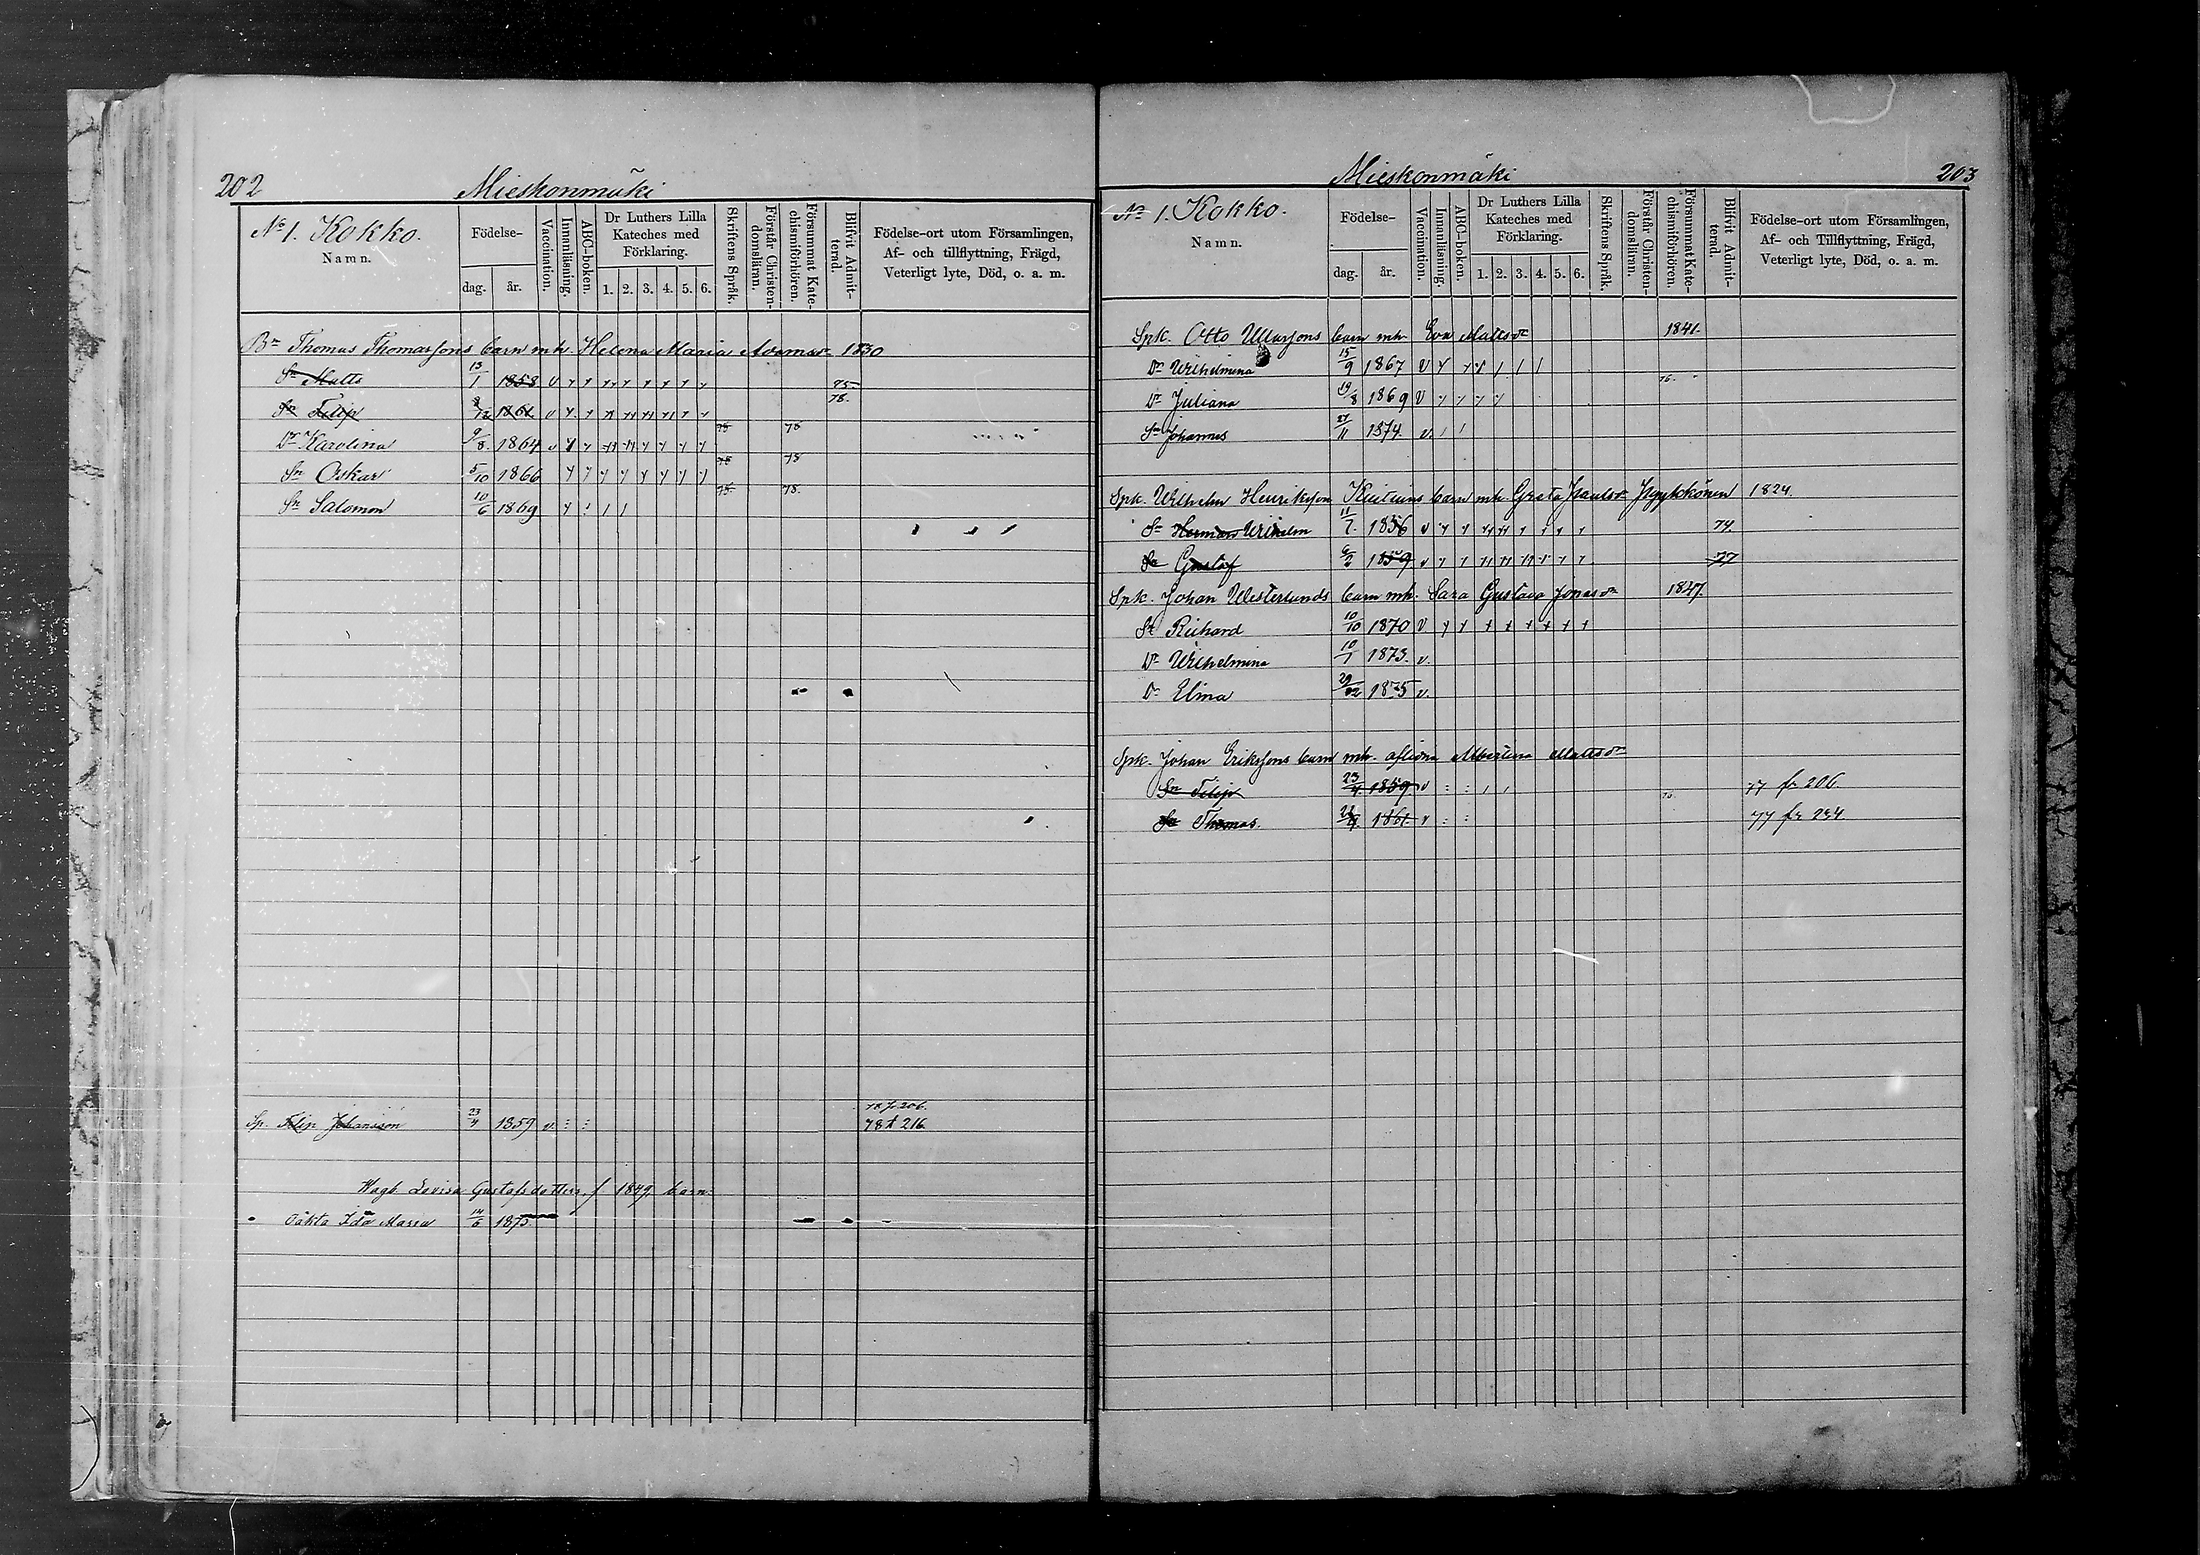 202 Mieskonmäki
No 1. Kokko.
Namn.
Födelse-
dag. år.
Vaccination.
Innanläsning.
ABC-boken.
Dr Luthers Lilla Kateches med Förklaring.
1. 2. 3. 4. 5. 6.
Skriftens Språk.
Förstår Christendomsläran.
Försummat Katechismiförhören.
Blifvit Admitterad.
Födelse-ort utom Församlingen,
Af- och tillflyttning, Frägd,
Veterligt lyte, Död, o. a. m.
Bn Thomas Thomassons barn mh. Helena Maria Adamsdr 1830
Sn Matts 13/1 1858 v 75
Sn Filip 1861 78.
Dr Karolina 9/8. 1864 v 78 78
Sn Oskar 5/10 1866 78 78
Sn Salomon 10/6 1869 78. 78.
78 fr 206.
Sp. Filip Johansson 23/4 1859 v. 78 t 216
Lovisa Gustafsdotters f. 1849 barn
Oäkta Ida Maria 14/6 1875.
Mieskonmäki 203
No 1. Kokko.
Namn.
Födelse-
dag. år.
Vaccination.
Innanläsning.
ABC-boken.
Dr Luthers Lilla Kateches med Förklaring.
1. 2. 3. 4. 5. 6.
Skriftens Språk.
Förstår Christendomsläran.
Försummat Katechismiförhören.
Blifvit Admitterad.
Födelse-ort utom Församlingen,
Af- och Tillflyttning, Frägd,
Veterligt lyte, Död, o. a. m.
Spk. Otto barn mh. Eva Mattsdr 1841.
Dr Wilhelmina 15/9 1867 v
Dr Juliana 19/8 1869 v 76.
Sn Johannes 27/11 1874. v.
Spk. Wilhelm Henriksson barn mh. Greta Paulsdr 1824.
Sn Herman Wilhelm 11/7. 1856 v 74.
Sn Gustaf 6/2 1859 v 77
Spk. Johan Westerlunds barn mh. Sara Gustava Jonasdr 1847.
Sn Richard 10/10 1870 v
Dr Wilhelmina 10/1 1873. v.
Dr Elina 29/12 1875 v.
Spk. Johan Erikssons barn mh. aflidna Albertina Mattsdr
Sn Filip 23/4. 1859 v 77 fr 206.
Sn Thomas. 1861. v 76. 77 fr 234.